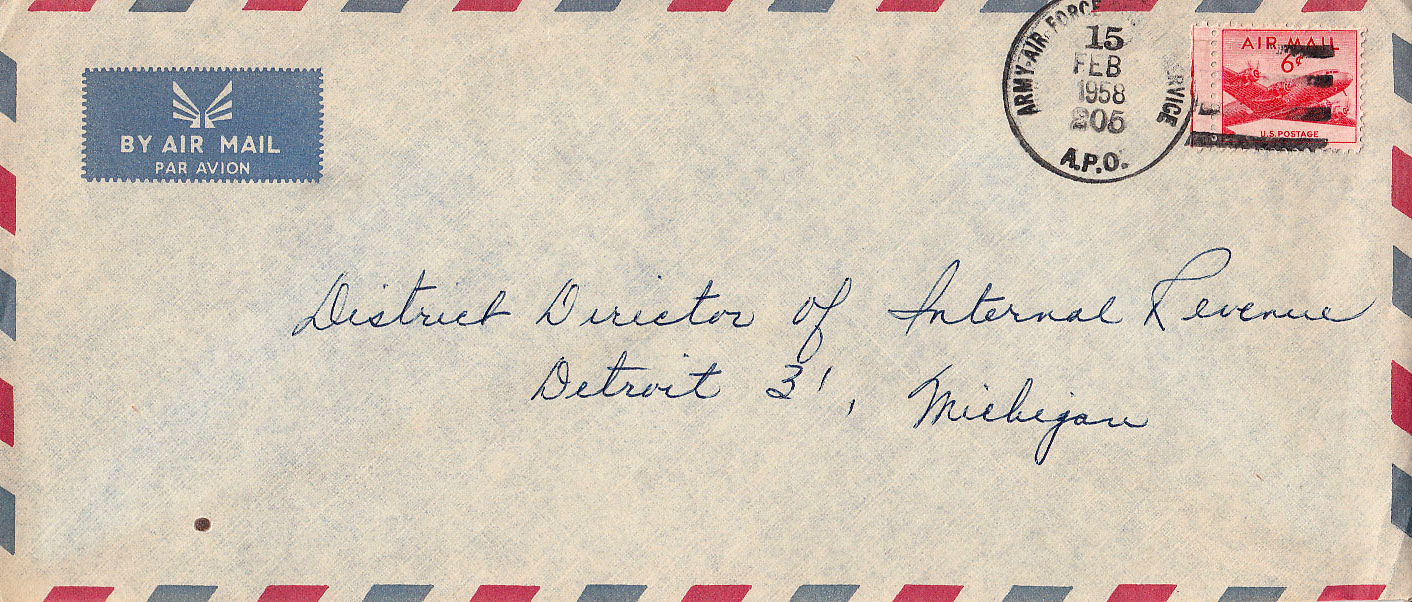 BY AIR MAIL
PAR AVION
ARMY-AIR FORCE SERVICE
15
FEB
1958
205
A.P.O.
AIR MAIL
6¢
U.S. POSTAGE
District Director of Internal Revenue
Detroit 31, Michigan